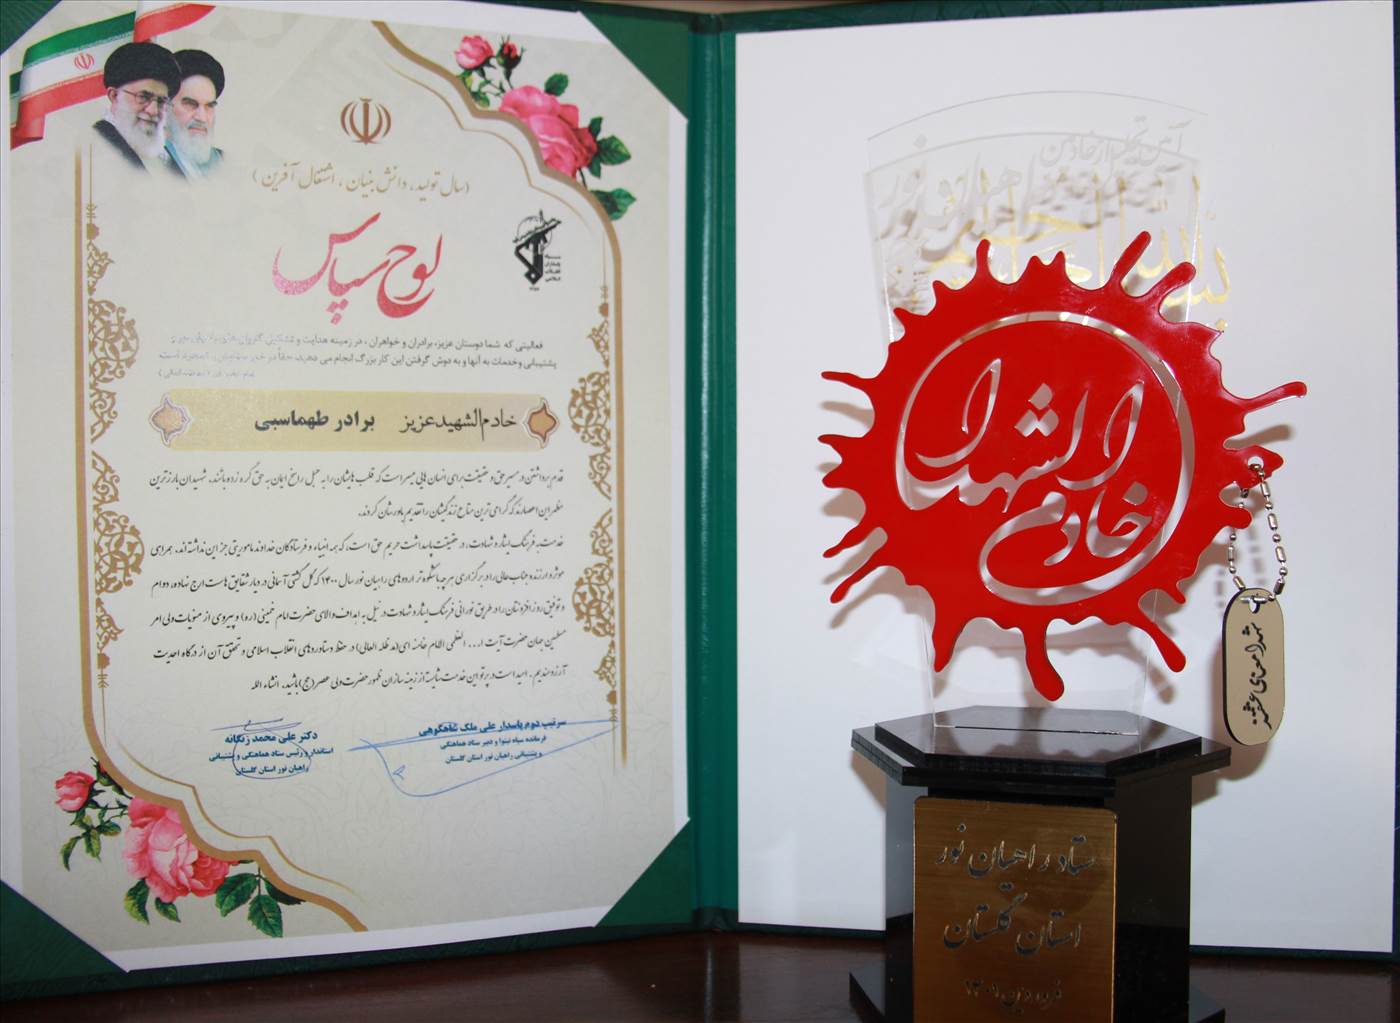 (سال تولید، دانش بنیان، اشتغال آفرین)
لوح سپاس
سپاه
پاسداران
انقلاب
اسلامی
فعالیتی که شما دوستان عزیز، برادران و خواهران، در زمینه هدایت و تشکیل
پشتیبانی و خدمات به آنها و به دوش گرفتن این کار بزرگ انجام می دهید، حقاً در خور ستایش، است
خادم‌الشهید عزیز برادر طهماسبی
قدم برداشتن در مسیر حق و حقیقت برای انسان هایی میسر است که قلب هایشان را به حبل راسخ ایمان به حق گره زده باشند. شهیدان بارزترین
مظهر این اعصارند که گرامی ترین متاع زندگیشان را تقدیم باورشان کردند.
خدمت به فرهنگ ایثار و شهادت، در حقیقت پاسداشت حریم حق است، که همه انبیاء و فرستادگان خداوند ماموریتی جز این نداشته اند. همراهی
موثر و ارزنده جنابعالی را در برگزاری هر چه باشکوه تر اردوهای راهیان نور سال ۱۴۰۰ که گل گشتی آسمانی در دیار شقایق هاست ارج نهاده، دوام
و توفیق روز افزونتان را در طریق نورانی فرهنگ ایثار و شهادت در نیل به اهداف والای حضرت امام خمینی (ره) و پیروی از منویات ولی امر
مسلمین جهان حضرت آیت ا... العظمی الامام خامنه ای(مد ظله العالی) در حفظ دستاوردهای انقلاب اسلامی و تحقق آن از درگاه احدیت
آرزومندیم. امید است در پرتو این خدمت شایسته از زمینه سازان ظهور حضرت ولی عصر(عج) باشید. انشاء الله
سرتیپ دوم پاسدار علی ملک شاهکوهی
فرمانده سپاه نینوا و دبیر ستاد هماهنگی
و پشتیبانی راهیان نور استان گلستان
دکتر علی محمد زنگانه
استاندار و رئیس ستاد هماهنگی و پشتیبانی
راهیان نور استان گلستان
خادم الشهدا
ستاد راهیان نور
استان گلستان